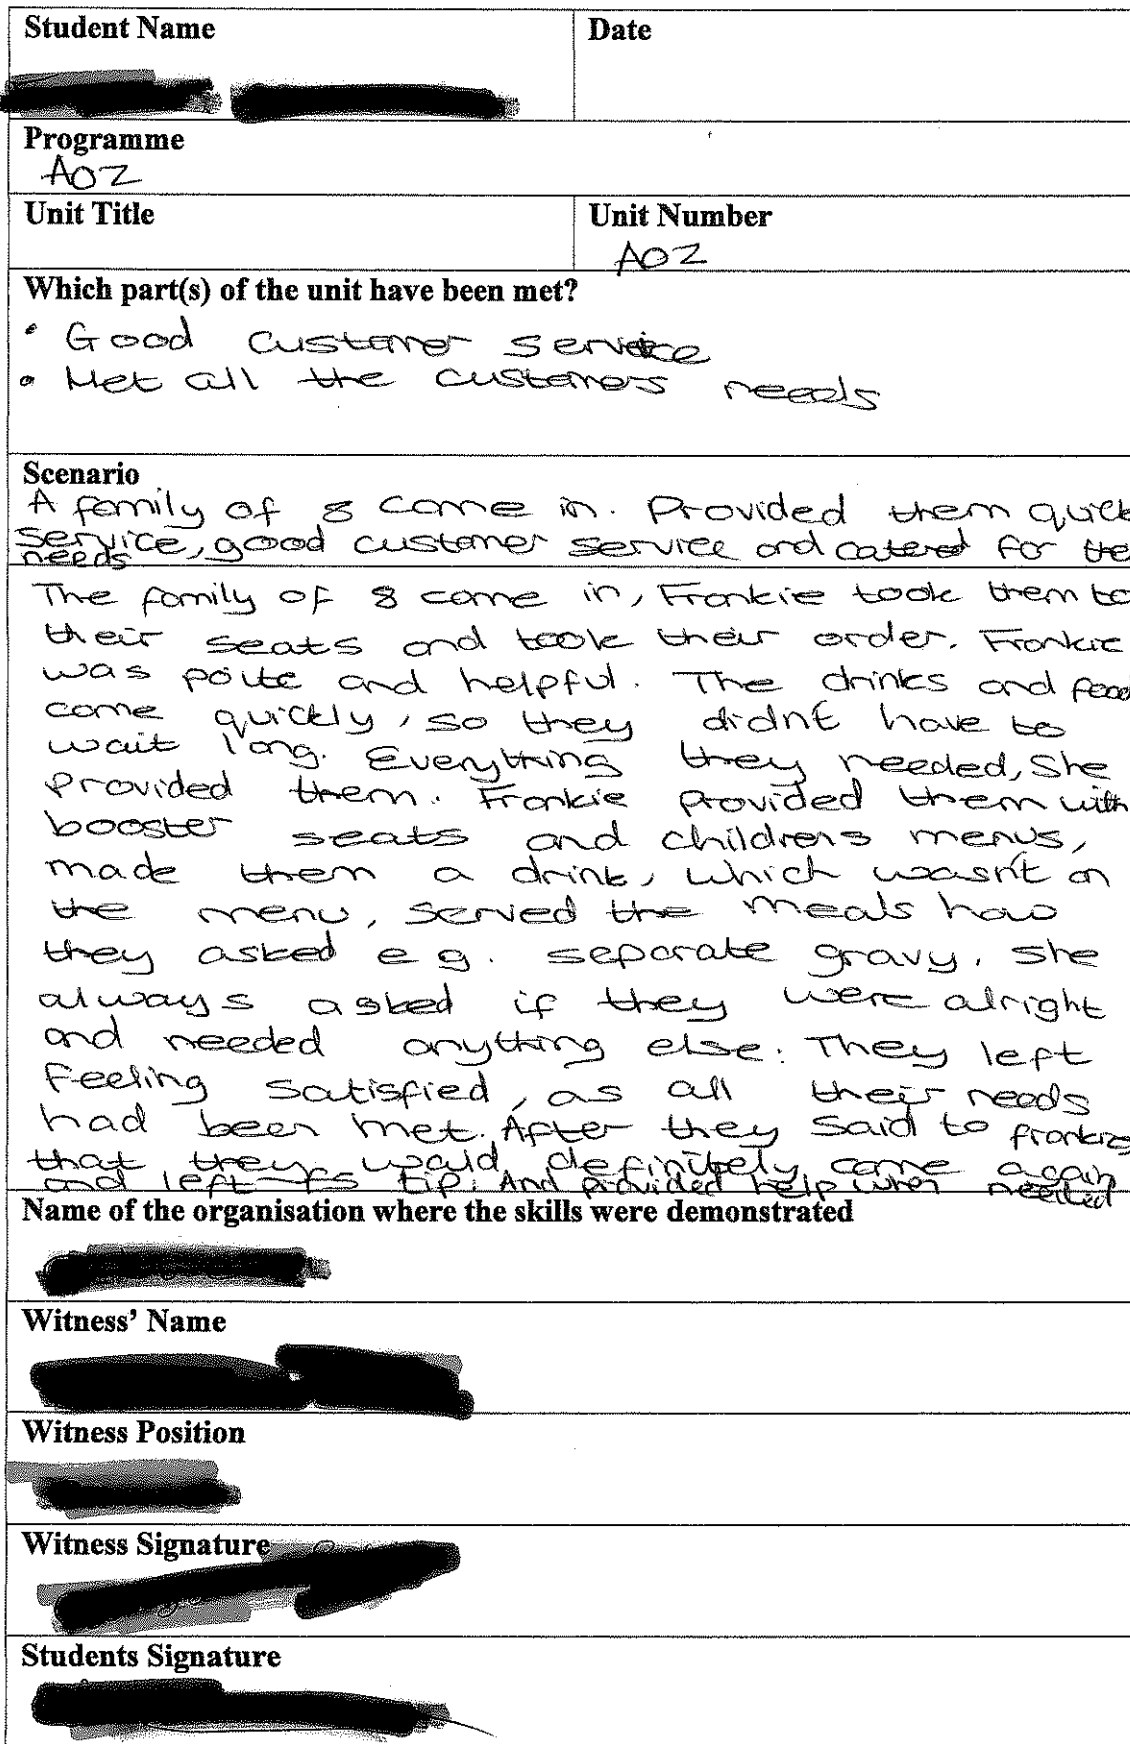 Student Name
Date
Programme
AO2
Unit Title
Unit Number
AO2
Which part(s) of the unit have been met?
• Good customer service
• Met all the customers needs
Scenario
A family of 8 come in. Provided them quick
service, good customer service and catered for the
needs
The family of 8 come in, Frankie took them to
their seats and took their order. Frankie
was polite and helpful. The drinks and food
come quickly, so they didn't have to
wait long. Everything they needed, she
provided them. Frankie provided them with
booster seats and childrens menus,
made them a drink, which wasn't on
the menu, served the meals how
they asked e.g. separate gravy. She
always asked if they were alright
and needed anything else. They left
feeling satisfied, as all their needs
had been met. After they said to frankie
that they would definitely come again
and left £5 tip. And provided help when needed
Name of the organisation where the skills were demonstrated
Witness' Name
Witness Position
Witness Signature
Students Signature